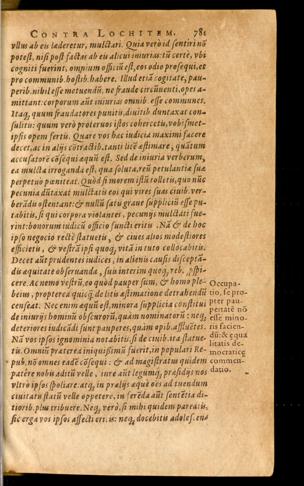 CONTRA LOCHITEM. 781
vllus ab eis læderetur, mulctari. Quia verò id sentiri nō
potest, nisi post factas ab eis alicui iniurias: tū certè, vbi
cogniti fuerint, omnium officiū est, eos odio prosequi, et
pro communib. hostib. habere. Illud etiā cogitate, pau-
perib. nihil esse metuendū, ne fraude circūuenti, opes a-
mittant: corporum aūt iniurias omnib. esse communes.
Itaq, quum fraudatores punitis, diuitib. duntaxat con-
sulitis: quum verò proteruos istos coherceatis, vobismet-
ipsis opem fertis. Quare vos hæc iudicia maximi facere
decet, ac in alijs cōtractib. tanti litē æstimare, quātum
accusatorē cōsequi æquū est. Sed de iniuria verberum,
ea mulcta irroganda est: qua soluta, reū petulantiæ suæ
perpetuò pœniteat. Quòd si morem istū tolletis, quo nūc
pecunia dūtaxat mulctatis eos qui vires suas ciuib. ver-
berādis ostentant: & nullū satis graue suppliciū esse pu-
tabitis, si qui corpora violantes, pecunijs mulctati fue-
rint: bonorum iudicū officio functi eritis. Nā & de hoc
ipso negocio rectè statuetis, & ciues alios modestiores
efficietis, & vestrā ipsi quoq, vitā in tuto collocabitis.
Decet aūt prudentes iudices, in alienis causis disceptā-
dis æquitate obseruanda, suis interim quoq, reb. pspi-
cere. Ac nemo vestrū, eo quòd pauper sum, & homo ple-
beius, propterea quicq̄ de litis æstimatione detrahendū
censeat. Nec enim æquū est, minora supplicia constitui
de iniurijs hominū obscurorū, quàm nominatorū: neq,
deteriores iudicādi sunt pauperes, quàm opib. affluētes.
Nā vos ipsos ignominia notabitis, si de ciuib. ita statue-
tis. Omniū præterea iniquissimū fuerit, in populari Re-
pub. nō omnes eadē cōsequi: & ad magistratus quidem
patēre nobis aditū velle, iure aūt legumq, præsidijs nos
vltrò ipsos spoliare: atq, in prælijs æquè oēs ad tuendum
ciuitatis statū velle oppetere, in ferēda aūt sentētia di-
tiorib. plus tribuere. Neq, verò, si mihi quidem pareatis,
sic erga vos ipsos affecti eritis: neq, docebitis adolescen-
Occupa-
tio, se pro-
pter pau-
pertatē nō
esse mino-
ris facien-
dū: & equa
litatis de-
mocraticę
commen-
datio.